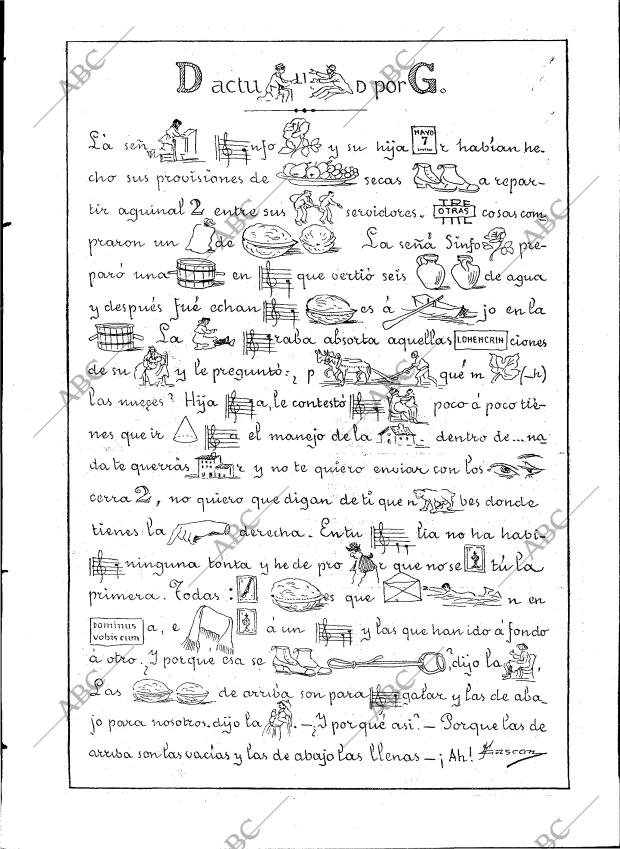 D actu LI D por G.
La señ nfo y su hija MAYO 7 r habían he-
cho sus provisiones de secas a repar-
tir aguinal 2 entre sus servidores. TRE OTRAS cosas com-
praron un de La señá Sinfo pre-
paró una en que vertió seis de agua
y después fué echan es á jo en la
La raba absorta aquellas LOHENGRIN ciones
de su y le preguntó: ¿ p qué m (_h)
las nueces? Hija a, le contestó poco á poco tie-
nes que ir el manejo de la dentro de... na
da te querrás r y no te quiero enviar con los
cerra 2, no quiero que digan de ti que n bes donde
tienes la derecha. En tu lia no ha habi-
ninguna tonta y he de pro r que no se tú la
primera. Todas : es que n en
DOMINUS VOBISCUM a, e á un y las que han ido á fondo
á otro. ¿Y porqué esa se ?, dijo la
Las de arriba son para galar y las de aba-
jo para nosotros. dijo la . – ¿Y por qué así? – Porque las de
arriba son las vacías y las de abajo las llenas – ¡Ah!
ABC